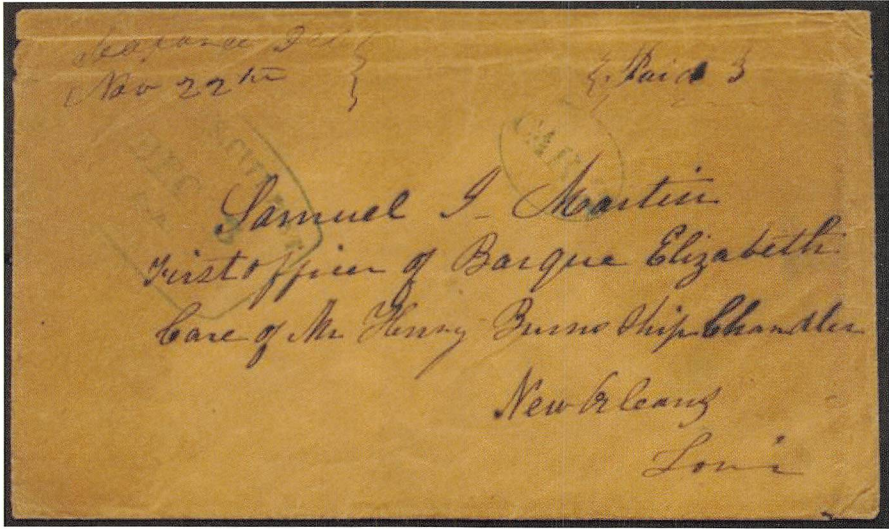 Nov 22th
Paid 3
DEC
CAR
Samuel J Martin
First officer of Barque Elizabeth
Care of Mr Henry Burns Ship Chandler
New Orleans
Loui